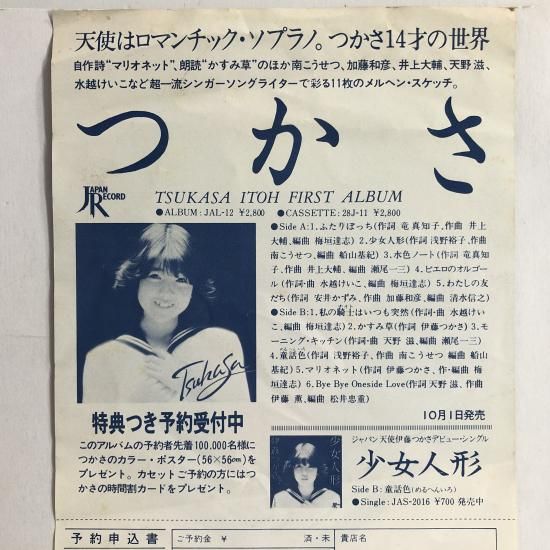 天使はロマンチック・ソプラノ。つかさ14才の世界
自作詩“マリオネット”、朗読“かすみ草”のほか南こうせつ、加藤和彦、井上大輔、天野 滋、
水越けいこなど超一流シンガーソングライターで彩る11枚のメルヘン・スケッチ。
つかさ
JAPAN RECORD
TSUKASA ITOH FIRST ALBUM
●ALBUM: JAL-12 ¥2,800 ●CASSETTE: 28J-11 ¥2,800
●Side A: 1.ふたりぼっち(作詞 竜 真知子、作曲 井上
大輔、編曲 梅垣達志) 2.少女人形(作詞 浅野裕子、作曲
南こうせつ、編曲 船山基紀) 3.水色ノート(作詞 竜真知
子、作曲 井上大輔、編曲 瀬尾一三) 4.ピエロのオルゴー
ル(作詞・曲 水越けいこ、編曲 梅垣達志) 5.わたしの友
だち(作詞 安井かずみ、作曲 加藤和彦、編曲 清水信之)
●Side B: 1.私の騎士はいつも突然(作詞・曲 水越けい
こ、編曲 梅垣達志) 2.かすみ草(作詞 伊藤つかさ) 3.モ
ーニング・キッチン(作詞・曲 天野 滋、編曲 瀬尾一三)
4.童話色(作詞 浅野裕子、作曲 南こうせつ 編曲 船山
基紀) 5.マリオネット(作詞 伊藤つかさ、作・編曲 梅
垣達志) 6.Bye Bye Oneside Love(作詞 天野 滋、作曲
伊藤 薫、編曲 松井忠重)
Tsukasa
10月1日発売
特典つき予約受付中
このアルバムの予約者先着100,000名様に
つかさのカラー・ポスター(56×56cm)を
プレゼント。カセットご予約の方にはつ
かさの時間割カードをプレゼント。
少女人形
ジャパン天使伊藤つかさデビュー・シングル
少女人形
Side B: 童話色(めるへんいろ)
●Single: JAS-2016 ¥700 発売中
予約申込書
ご予約金 ¥ 済・未
貴店名